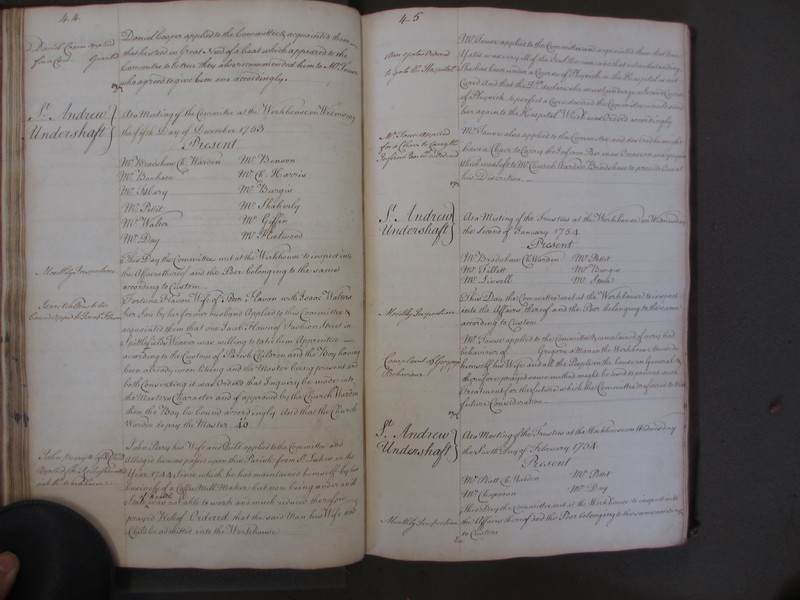 44
Daniel Cooper applied to the Committee & acquainted them
that he stood in Great Need of a Coat which appeared to the
Committee to be true they also recommended him to Mr. Tower
who agreed to give him one accordingly.
St. Andrew
Undershaft
At a Meeting of the Committee at the Workhouse on Wednesday
the fifth Day of December 1753
Present
Mr. Bradshaw Ch. Warden Mr. Benson
Mr. Ch. Harris
Mr. Burges
Mr. Pettit Mr. Shakerly
Mr. Walter Mr. Giffin
Mr. Day Mr. Fleetwood
Monthly Inspection
This Day the Committee met at the Workhouse to inspect into
the Affairs thereof and the Poor belonging to the same
according to Custom
Wife of Peter Flavon with Isaac Walters
her Son by her former husband Applied to this Committee &
acquainted them that one Jacob of Fashion Street in
Spittlefields Weaver was willing to take him Apprentice
according to the Custom of Parish Children and the Boy having
been already upon liking and the Master being present and
both Consenting it was Ordered that Inquiry be made into
the Masters Character and if approved by the Church Warden
then the Boy be bound accordingly And that the Church
Warden do pay the Master 40
John Perry his Wife and Child applied to the Committee and
alledged he was passed upon this Parish from St. in the
Year 1744, Since which he has maintained himself by his
business of a Coffee Mill Maker but now being under
Sick was not able to work and much reduced therefore
prayed Relief Ordered that the said Man his Wife and
Child be admitted into the Workhouse
45
Mr. Tower applied to the Committee and acquainted them that Ann
Yates was very ill of the Foul Disease and that notwithstanding
She has been under a Course of Physick in the Hospital is not
Cured And that the Dr. declares she must undergo another Course
of Physick to perfect a Cure desired the Committee would send
her again to the Hospital Which was Ordered accordingly
Mr. Tower also applied to the Committee and desired he might
have a Chair to Carry the Infirm Poor
which was left to Mr. Church Warden Bradshaw to provide One at
his Discretion
St. Andrew
Undershaft
At a Meeting of the Trustees at the Workhouse on Wednesday
the Second of January 1754
Present
Mr. Bradshaw Ch. Warden Mr. Pettit
Mr. Tillett Mr. Burges
Monthly Inspection
This Day the Committee met at the Workhouse to inspect
into the Affairs thereof and the Poor belonging to the same
according to Custom
Mr. Tower applied to the Committee & complained of very bad
behaviour of Gregory a Man in the Workhouse towards
himself his Wife and all the People in the house in General &
therefore prayed some method might be used to prevent such
treatment for the future which the Committee referred to their
future Consideration
St. Andrew
Undershaft
At a Meeting of the Trustees at the Workhouse on Wednesday
the Sixth Day of February 1754
Present
Mr. Pratt Ch. Warden Mr. Pettit
Mr. Chapman Mr. Day
Monthly Inspection
This Day the Committee met at the Workhouse to inspect into
the Affairs thereof and the Poor belonging to the same according
to Custom